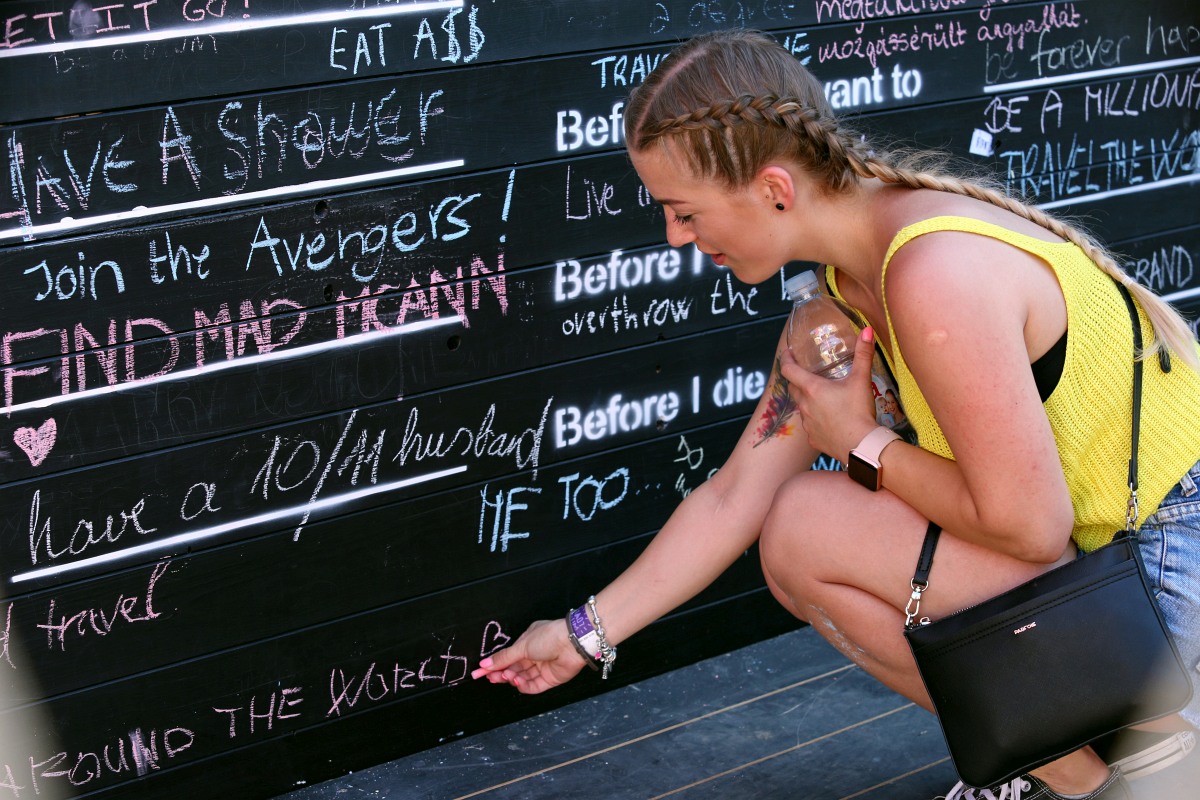 ET IT GO!
EAT A$$
HAVE A SHOWER
Join the Avengers!
FIND MAD MCANN
have a 10/11 husband
travel
AROUND THE WORLD
a degree
TRAV
Bef want to
Live
Before I
overthrow the
Before I die
ME TOO...
mozgássérült angyalkát.
be forever hap
BE A MILLION
TRAVEL THE WO
GRAND